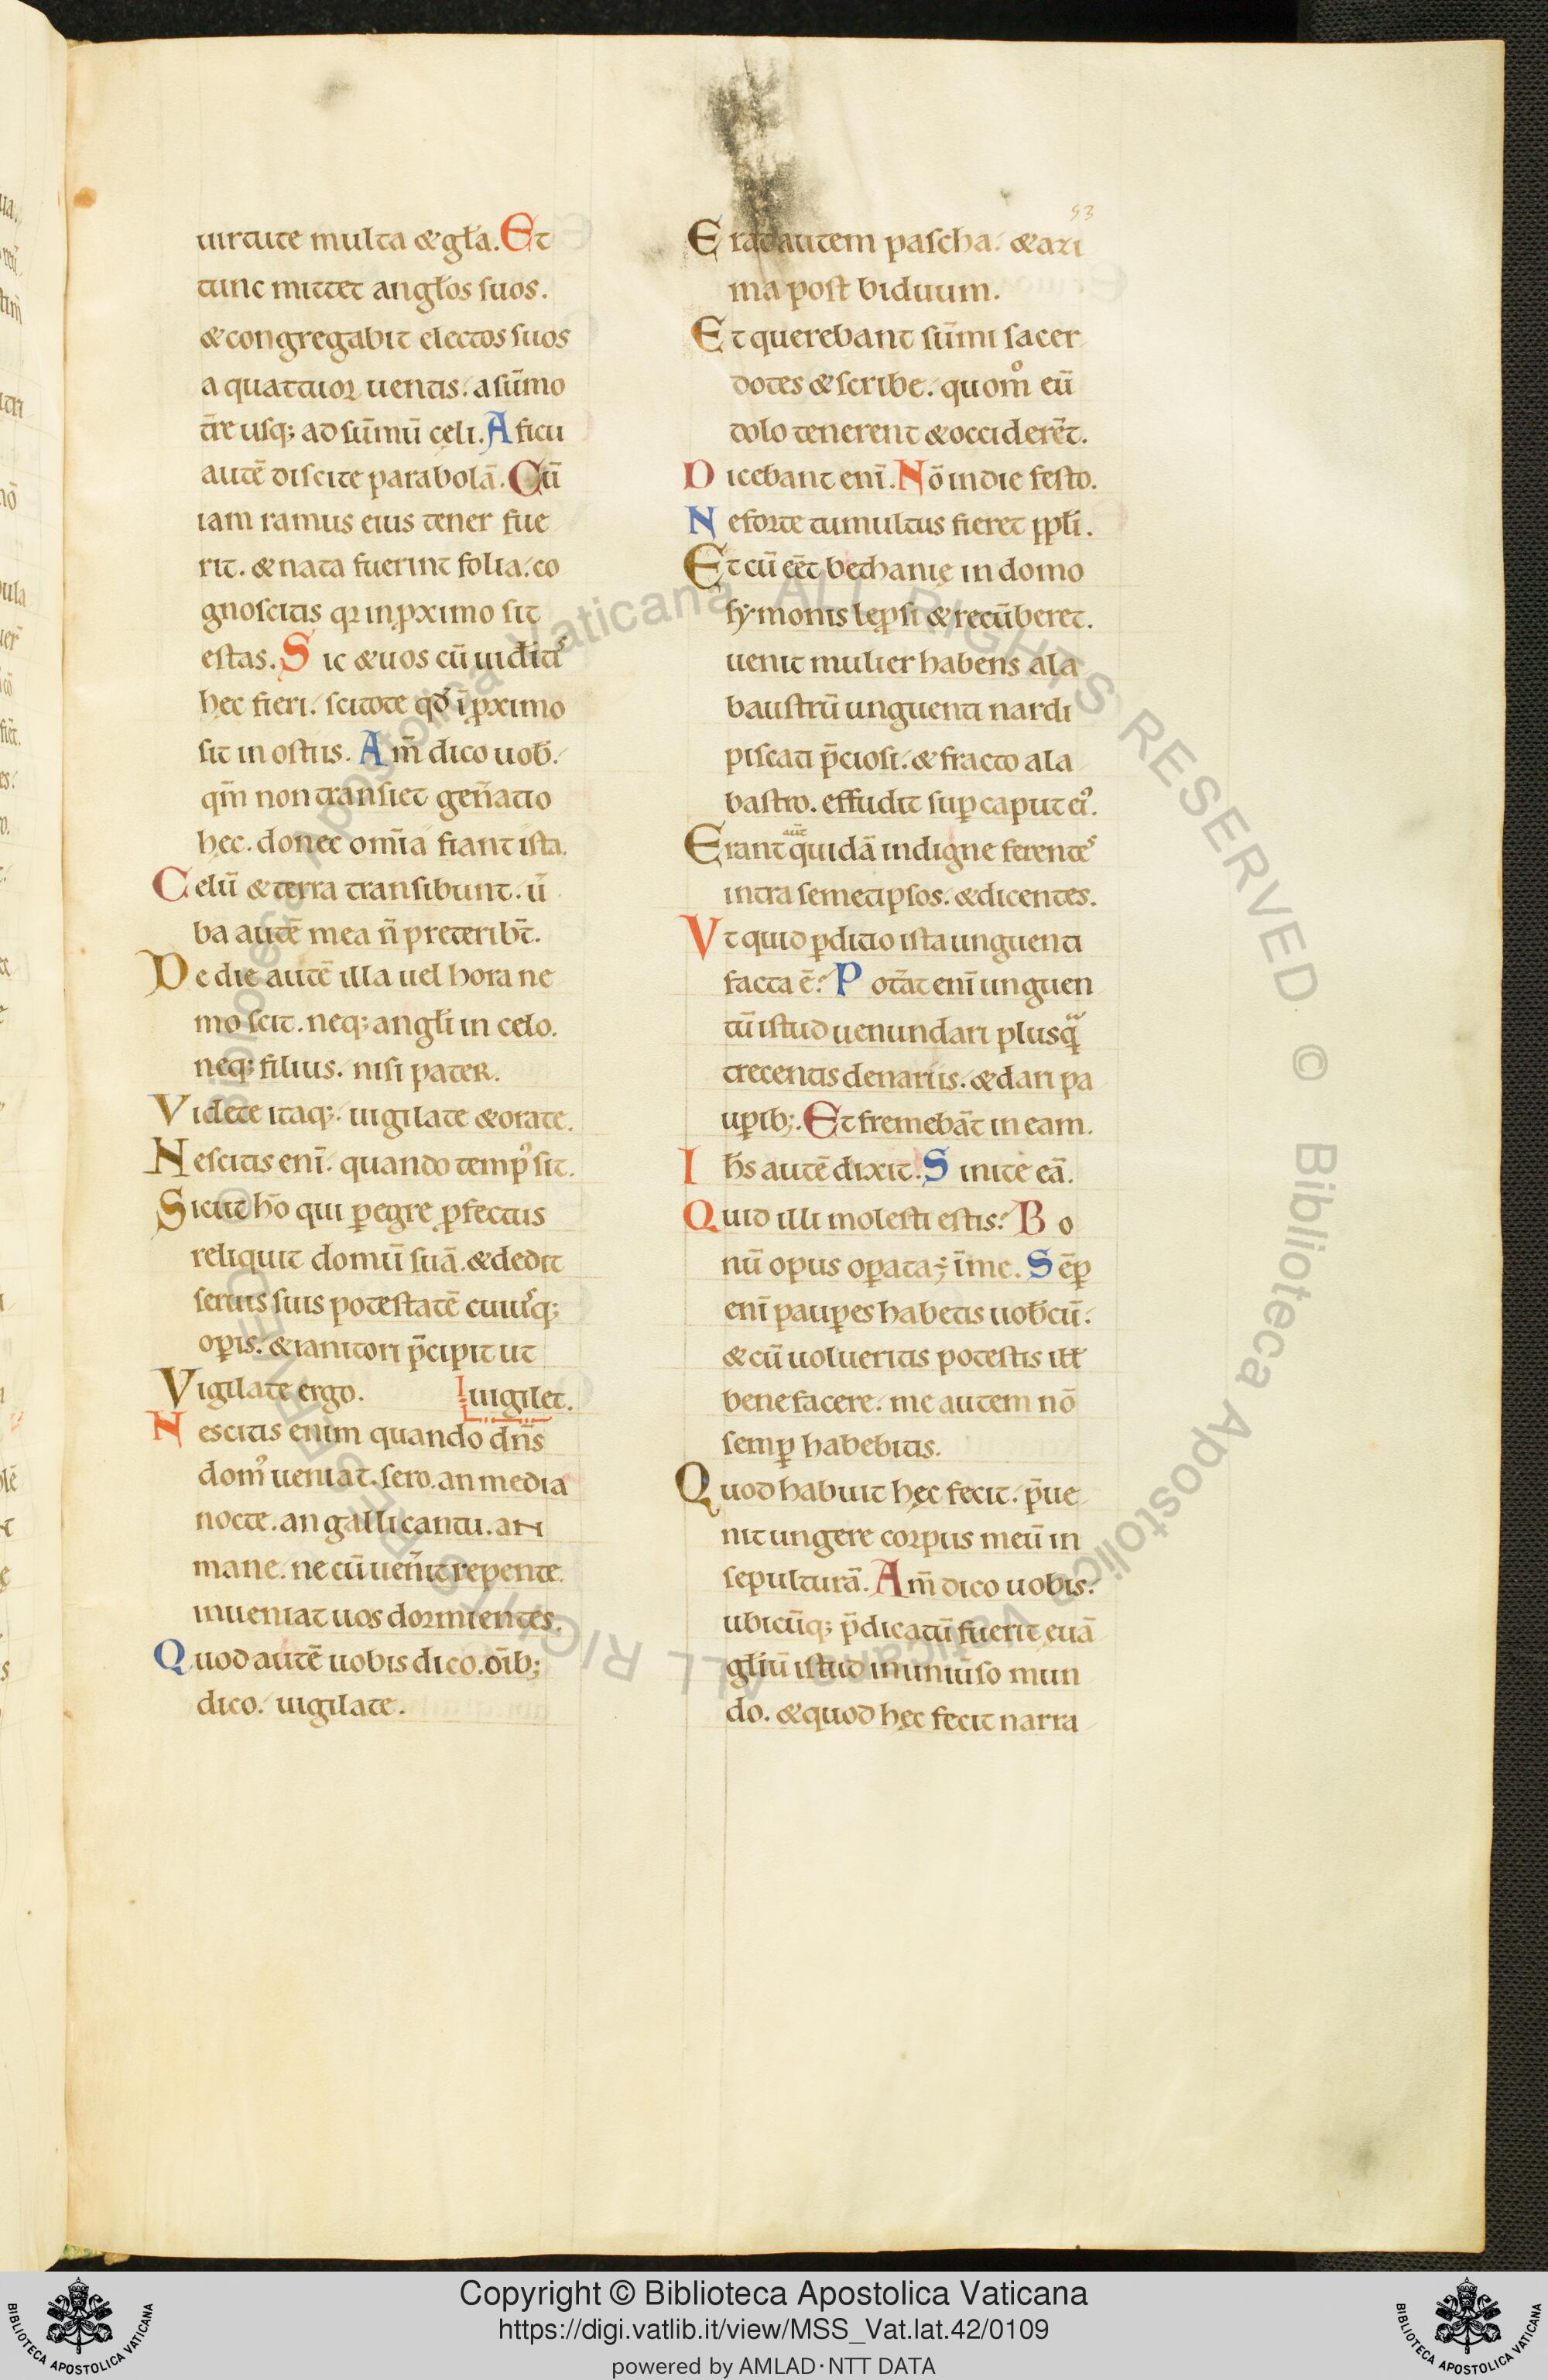 uirtute multa & gła. Et
tunc mittet angłos suos.
& congregabit electos suos
a quattuor uentis. a sūmo
t̄re usq; ad sūmū celi. A ficu
autē discite parabolā. Cū
iam ramus eius tener fue
rit. & nata fuerint folia. co
gnoscitis qꝛ in ꝓximo sit
estas. Sic & uos cū uid̄itis
hęc fieri. scitote qd̄ ī ꝓximo
sit in ostiis. Am̄ dico uob̄.
qm̄ non transiet gen̄atio
hęc. donec om̄ia fiant ista.
Celū & terra transibunt. ū
ba autē mea n̄ preteribt̄.
De die autē illa uel hora ne
mo scit. neq; angłi in celo.
neq; filius. nisi pater.
Videte itaq;. uigilate & orate.
Nescitis enī. quando tempꝰ sit.
Sicut hō qui ꝑegre ꝓfectus
reliquit domū suā. & dedit
seruis suis potestatē cuiusq;
oꝑis. & ianitori p̄cipit ut
Vigilate ergo. uigilet.
Nescitis enim quando dn̄s
domꝰ ueniat. sero. an media
nocte. an galli cantu. an
mane. ne cū uen̄it repente
inueniat uos dormientes.
Quod autē uobis dico. oīb;
dico. uigilate.
53
Erat autem pascha. & azi
ma post biduum.
Et querebant sūmi sacer
dotes & scribe. quom̊ eū
dolo tenerent & occiderēt.
Dicebant enī. Nō in die festo.
Ne forte tumultus fieret ppłi.
Et cū eēt bethanię in domo
symonis leprosi & recūberet.
uenit mulier habens ala
baustrū unguenti nardi
piscati p̄ciosi. & fracto ala
bastro. effudit suꝑ caput eiꝰ.
Erant aut̄ quidā indigne ferentes
intra semetipsos. & dicentes.
Vt quid ꝑditio ista unguenti
facta ē? Pot̄at enī unguen
tū istud uenundari plusq̄
trecentis denariis. & dari pa
uꝑib;. Et fremebāt in eam.
Ih̄s autē dixit. Sinite eā.
Quid illi molesti estis? Bo
nū opus oꝑata ÷ ī me. Sēꝑ
enī pauꝑes habetis uob̄cū.
& cū uolueritis potestis iłł
bene facere. me autem nō
semꝑ habebitis.
Quod habuit hęc fecit. p̄ue
nit ungere corpus meū in
sepulturā. Am̄ dico uobis.
ubicūq; p̄dicatū fuerit euā
głiū istud in uniūso mun
do. & quod hęc fecit narra
Copyright © Biblioteca Apostolica Vaticana
https://digi.vatlib.it/view/MSS_Vat.lat.42/0109
powered by AMLAD·NTT DATA